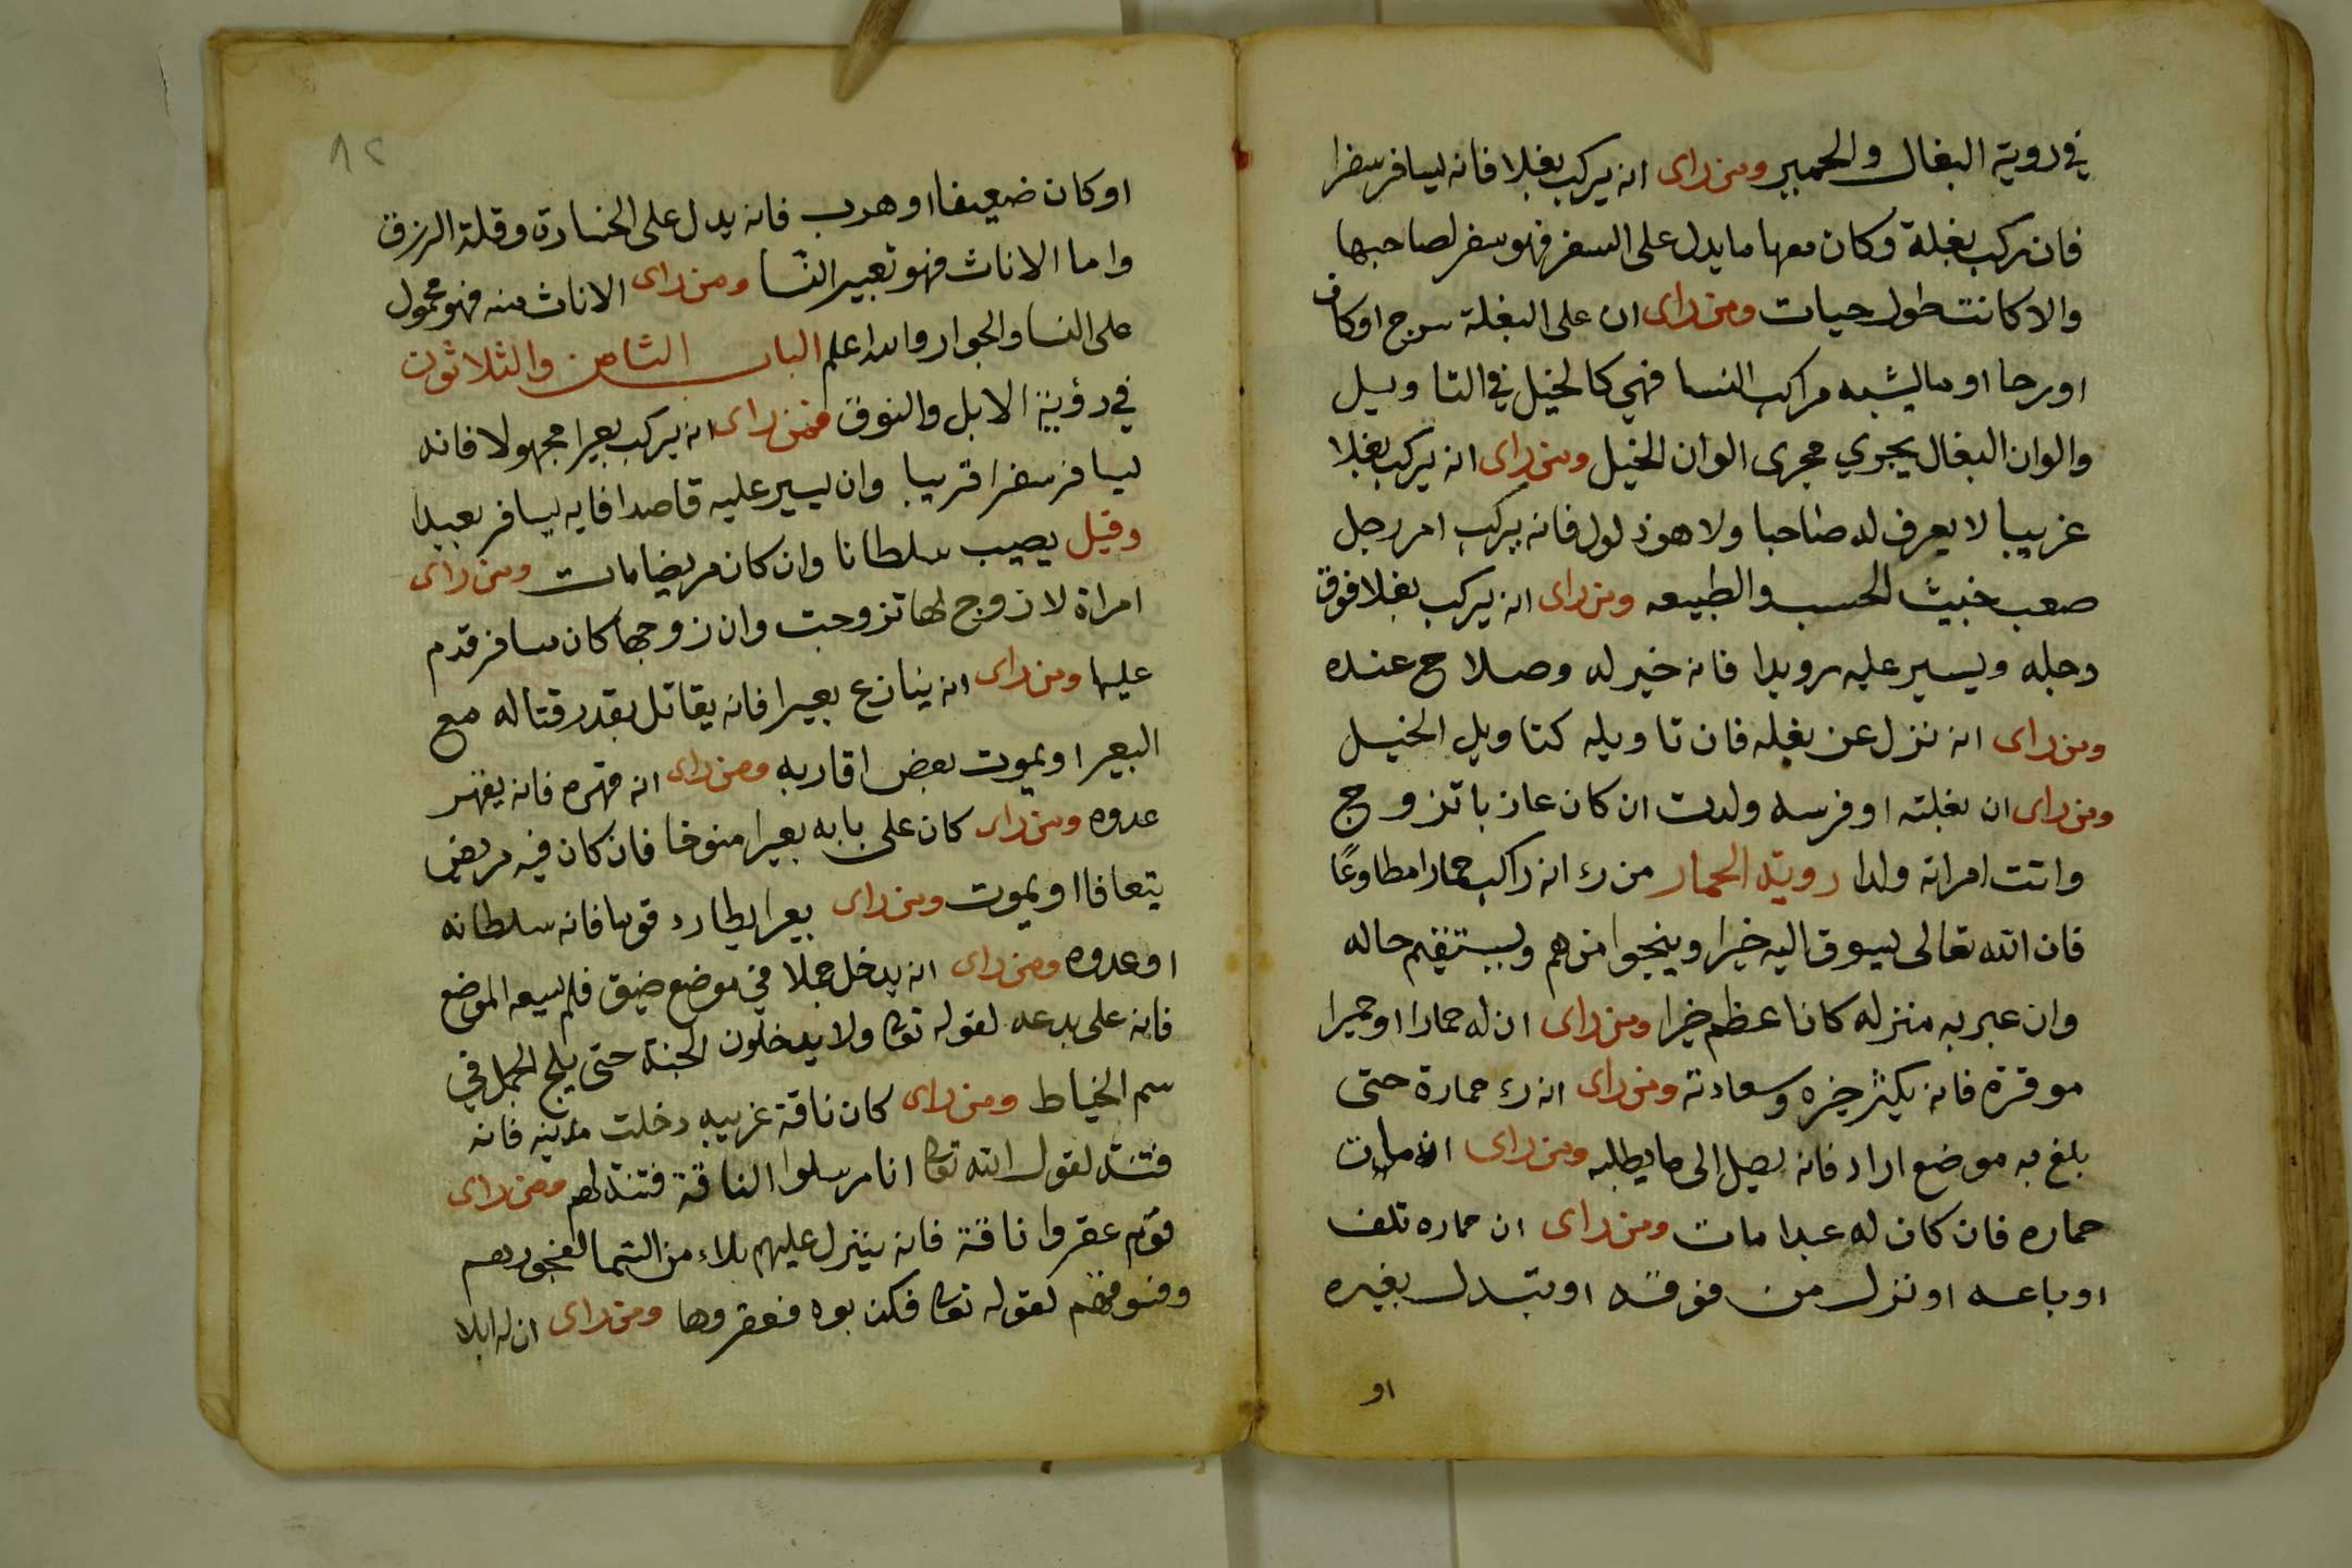 في روية البغال والحمير ومن راى انه يركب بغلا فانه يسافر سفرا
فان ركب بغلة وكان معها ما يدل على السفر فهو سفر لصاحبها
والا كانت طول حيات ومن راى ان على البغلة سرج او كاف
او رحا او ما يشبه مراكب النسا فهي كالخيل في التاويل
والوان البغال يجري مجرى الوان الخيل ومن راى انه يركب بغلا
غريبا لا يعرف له صاحبا ولا هو ذلول فانه يركب امر رجل
صعب خبيث الحسب والطبيعه ومن راى انه يركب بغلا فوق
رحله ويسير عليه رويدا فانه خير له وصلاح عنده
ومن راى انه نزل عن بغله فان تاويله كتاويل الخيل
ومن راى ان بغلته او فرسه ولدت ان كان عازبا تزوج
واتت امراته ولدا روية الحمار من رء انه راكب حمارا مطاوعًا
فان الله تعالى يسوق اليه خيرا وينجوا من هم ويستقيم حاله
وان عبر به منزله كان اعظم خيرا ومن راى ان له حمارا او حميرا
موقرة فانه يكثر خيره وسعادته ومن راى انه رء حمارة حتى
بلغ به موضع اراد فانه يصل الى ما يطلبه ومن راى ان مات
حماره فان كان له عبدا مات ومن راى ان حماره تلف
او باعه او نزل من فوقه او يتبدل بغيره
او
٨٢
او كان ضعيفا او هرب فانه يدل على الخسارة وقلة الرزق
واما الاناث فهو تعبير النسا ومن راى الاناث منه فهو محمول
على النسا والجوار والله اعلم الباب الثامن والثلاثون
في رؤية الابل والنوق فمن راى انه يركب بعيرا مجهولا فانه
يسافر سفرا قريبا وان يسير عليه قاصدا فانه يسافر بعيدا
وقيل يصيب سلطانا وان كان مريضا مات ومن راى
امراة لا زوج لها تزوجت وان زوجها كان مسافر قدم
عليها ومن راى انه ينازع بعيرا فانه يقاتل بقدر قتاله مع
البعير او يموت بعض اقاربه ومن راى انه قهره فانه يقهر
عدوه ومن راى كان على بابه بعيرا منوخا فان كان فيه مريض
يتعافا او يموت ومن راى بعيرا يطارد قوما فانه سلطانه
او عدوه ومن راى انه يدخل جملا في موضع ضيق فلم يسعه الموضع
فانه على بدعه لقوله تعا ولا يدخلون الجنة حتى يلج الجمل في
سم الخياط ومن راى كان ناقة غريبه دخلت مدينه فانه
فتنة لقول الله تعا انا مرسلوا الناقة فتنة لهم ومن راى
قوم عقروا ناقة فانه ينزل عليهم بلاء من السما لفجورهم
وفسوقهم لقوله تعا فكذبوه فعقروها ومن راى ان له ابلا